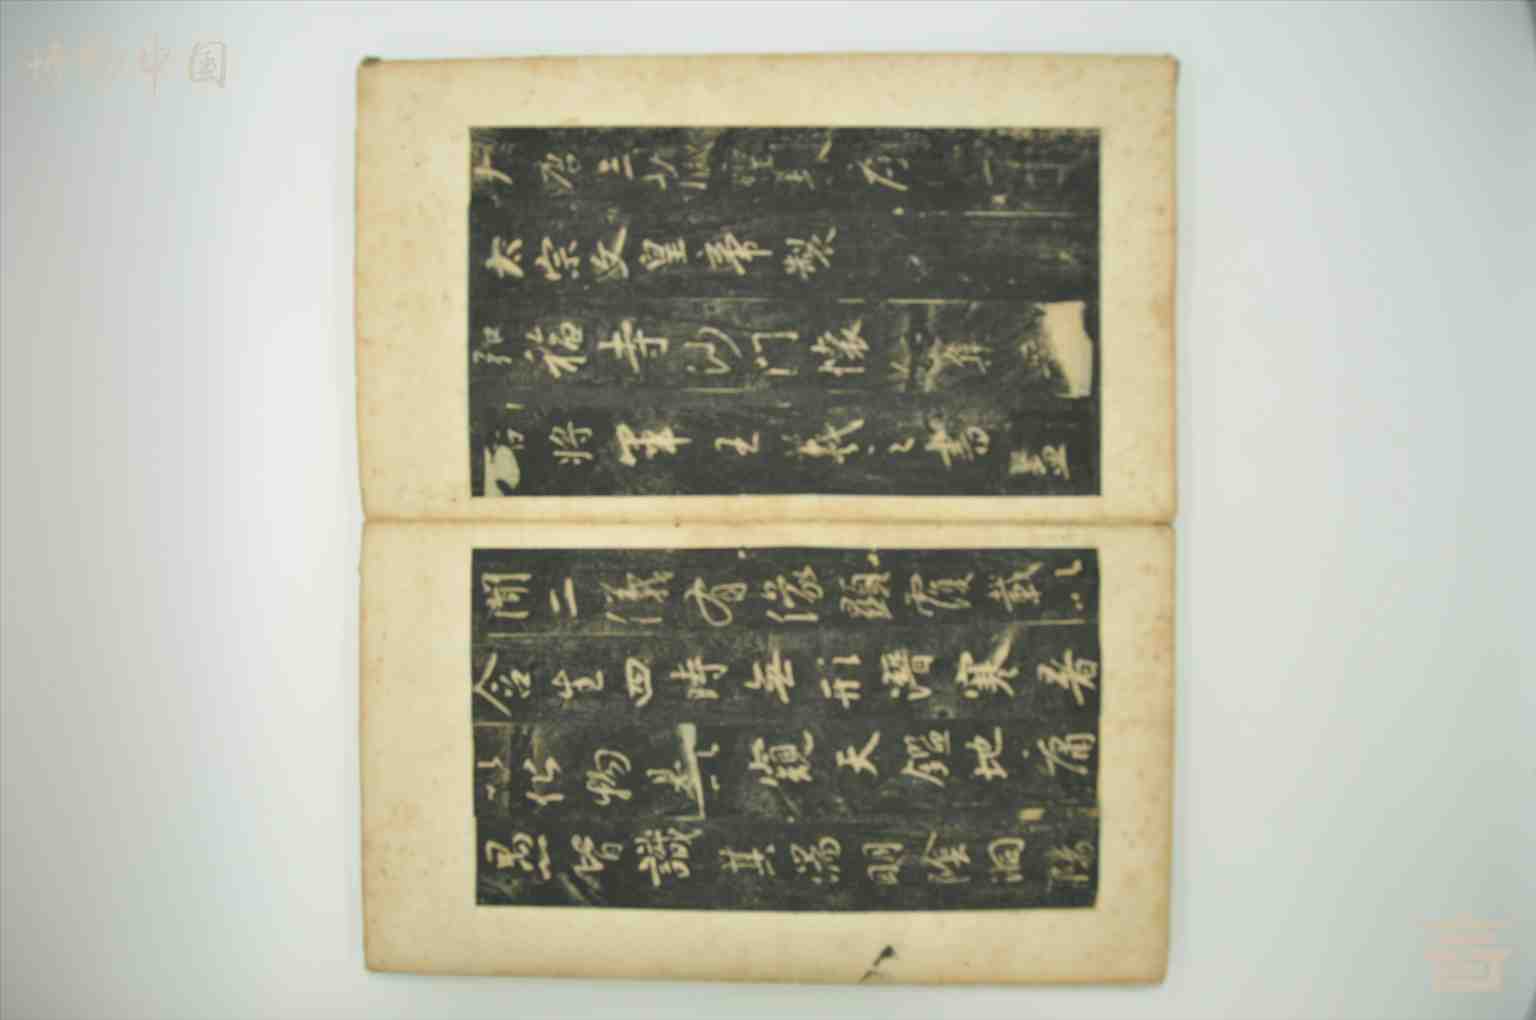 大唐三藏聖教序
太宗文皇帝製
弘福寺沙門懷仁集
右將軍王羲之書蓋
聞二儀有像顯覆載以
含生四時無形潛寒暑
以化物是以窺天鑑地庸
愚皆識其端明陰洞陽
博物中国